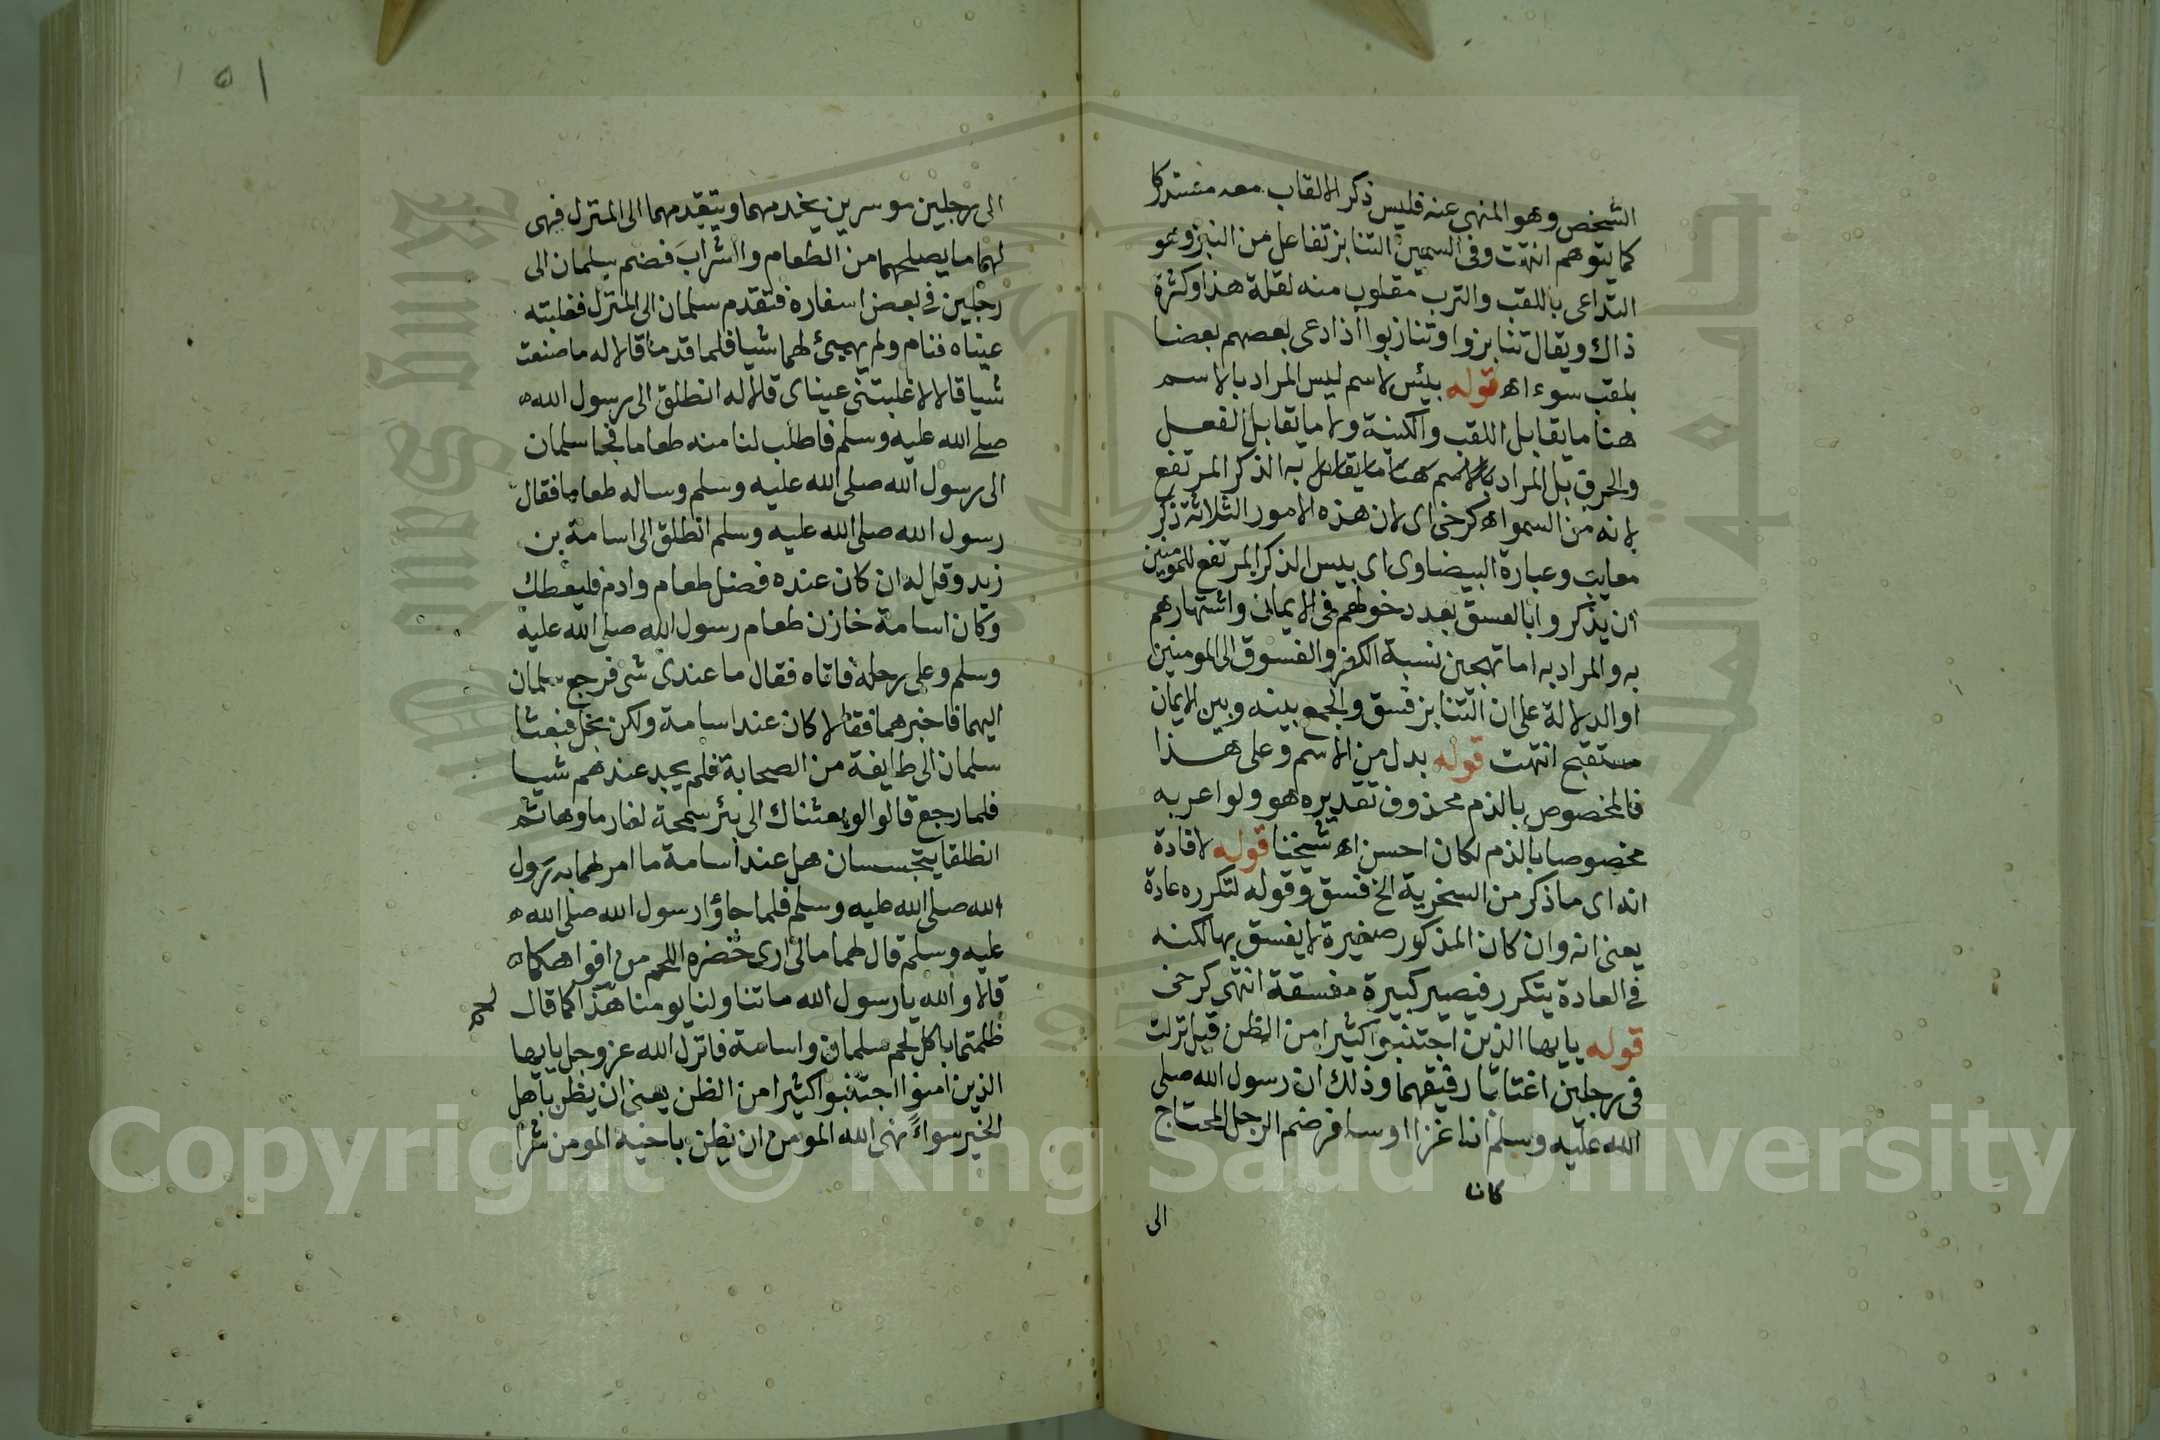 الشخص وهو المنهي عنه فليس ذكر الالقاب معه مستدركا
كما يتوهم انتهت وفي السمين التنابز تفاعل من النبز وهو
التداعي باللقب والنزب مقلوب منه لقلة هذا وكثرة
ذاك ويقال تنابزوا وتنازبوا اذا دعى بعضهم بعضا
بلقب سوء اه قوله بيئس الاسم ليس المراد بالاسم
هنا ما يقابل اللقب والكنية ولا ما يقابل الفعل
والحرف بل المراد بالاسم هنا ما يقابل به الذكر المرتفع
لانه من السمو اه كرخي اي لان هذه الامور الثلاثة ذكر
معايب وعبارة البيضاوي اي بيس الذكر المرتفع للمومنين
ان يذكروا بالفسق بعد دخولهم في الايمان واشتهارهم
به والمراد به اما تهجين نسبة الكفر والفسوق الى المومنين
او الدلالة على ان التنابز فسق والجمع بينه وبين الايمان
مستقبح انتهت قوله بدل من الاسم وعلى هذا
فالمخصوص بالذم محذوف تقديره هو ولو اعربه
مخصوصا بالذم لكان احسن اه شيخنا قوله لافادة
انه اي ما ذكر من السخرية الخ فسق وقوله لتكرره عادة
يعني انه وان كان المذكور صغيرة لا يفسق بها لكنه
في العادة يتكرر فيصير كبيرة مفسقة انتهى كرخي
قوله يايها الذين اجتنبوا كثيرا من الظن قيل نزلت
في رجلين اغتابا رفيقهما وذلك ان رسول الله صلى
الله عليه وسلم اذا غزا او سافر ضم الرجل المحتاج
كان
الى
١٥١
الى رجلين موسرين يخدمهما ويتقدمهما الى المنزل فهي
لهما ما يصلحهما من الطعام والشراب فضم سلمان الى
رجلين في بعض اسفاره فتقدم سلمان الى المنزل فغلبته
عيناه فنام ولم يهيئ لهما شيا فلما قدما قالا له ما صنعت
شيا قال لا غلبتني عيناي قالا له انطلق الى رسول الله
صلى الله عليه وسلم فاطلب لنا منه طعاما فجا سلمان
الى رسول الله صلى الله عليه وسلم وساله طعاما فقال
رسول الله صلى الله عليه وسلم انطلق الى اسامة بن
زيد وقل له ان كان عنده فضل طعام وادم فليعطك
وكان اسامة خازن طعام رسول الله صلى الله عليه
وسلم وعلى رحله فاتاه فقال ما عندي شي فرجع سلمان
اليهما فاخبرهما فقالا كان عند اسامة ولكن بخل فبعثا
سلمان الى طايفة من الصحابة فلم يجد عندهم شيا
فلما رجع قالوا لو بعثناك الى بئر سمحة لغار ماوها ثم
انطلقا يتجسسان هل عند اسامة ما امر لهما به رسول
الله صلى الله عليه وسلم فلما جاؤا رسول الله صلى الله
عليه وسلم قال لهما مالي ارى خضرة اللحم من افواهكما
قالا والله يا رسول الله ما تناولنا يومنا هذا كما قال
لحم
ظلمتما باكل لحم سلمان واسامة فانزل الله عز وجل يايها
الذين امنوا اجتنبوا كثيرا من الظن يعني ان يظن باهل
الخير سواءً نهى الله المومن ان يظن باخيه المومن شرا
Copyright © King Saud University